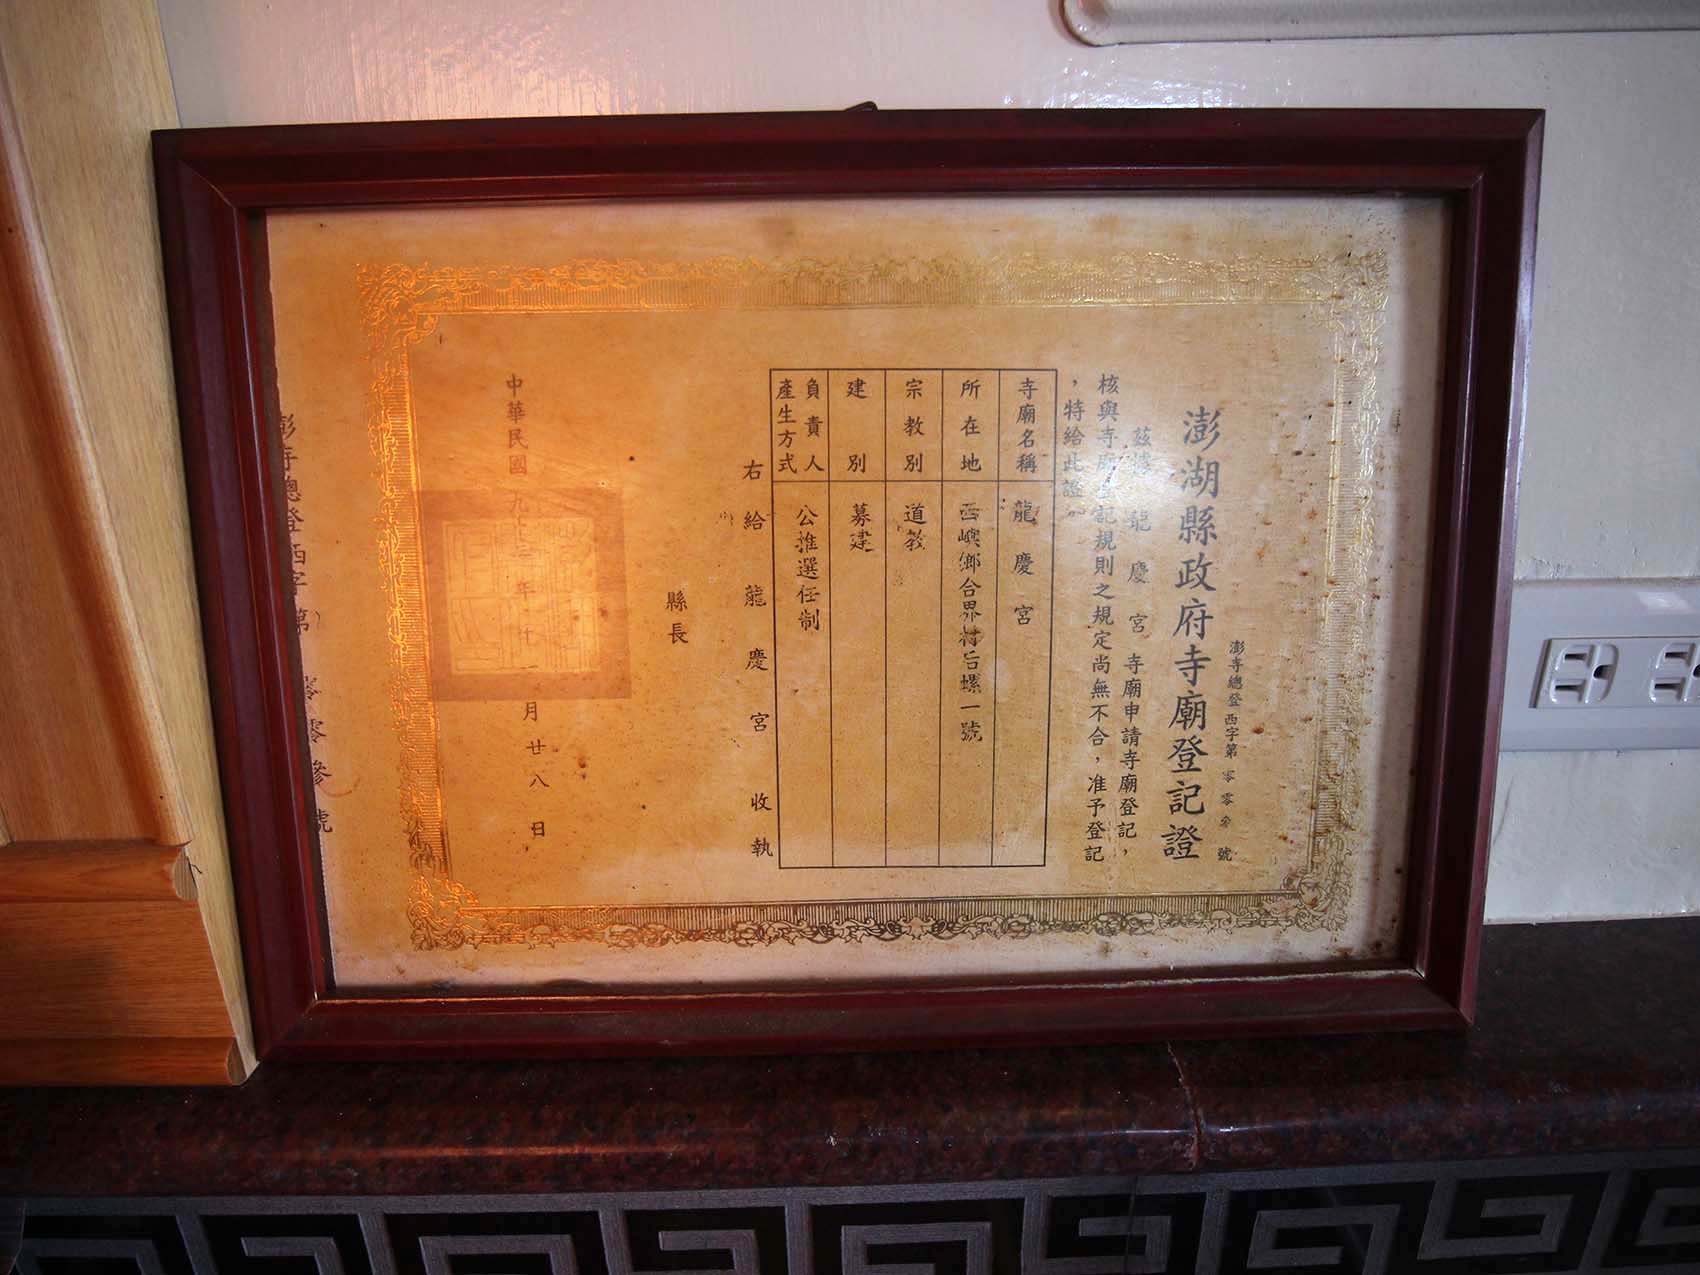 澎湖縣政府寺廟登記證
澎寺總登西字第零零參號
茲據龍慶宮寺廟申請寺廟登記，
核與寺廟登記規則之規定尚無不合，准予登記
，特給此證。
寺廟名稱 龍慶宮
所在地 西嶼鄉合界村后螺一號
宗教別 道教
建別 募建
負責人產生方式 公推選任制
右給龍慶宮收執
縣長
中華民國九十二年十一月廿八日
澎寺總登西字第零零參號